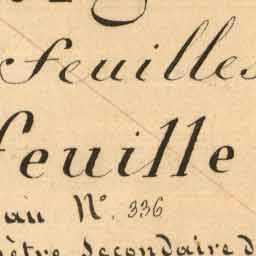 feuilles
feuille
au N°. 336
ètre Secondaire d